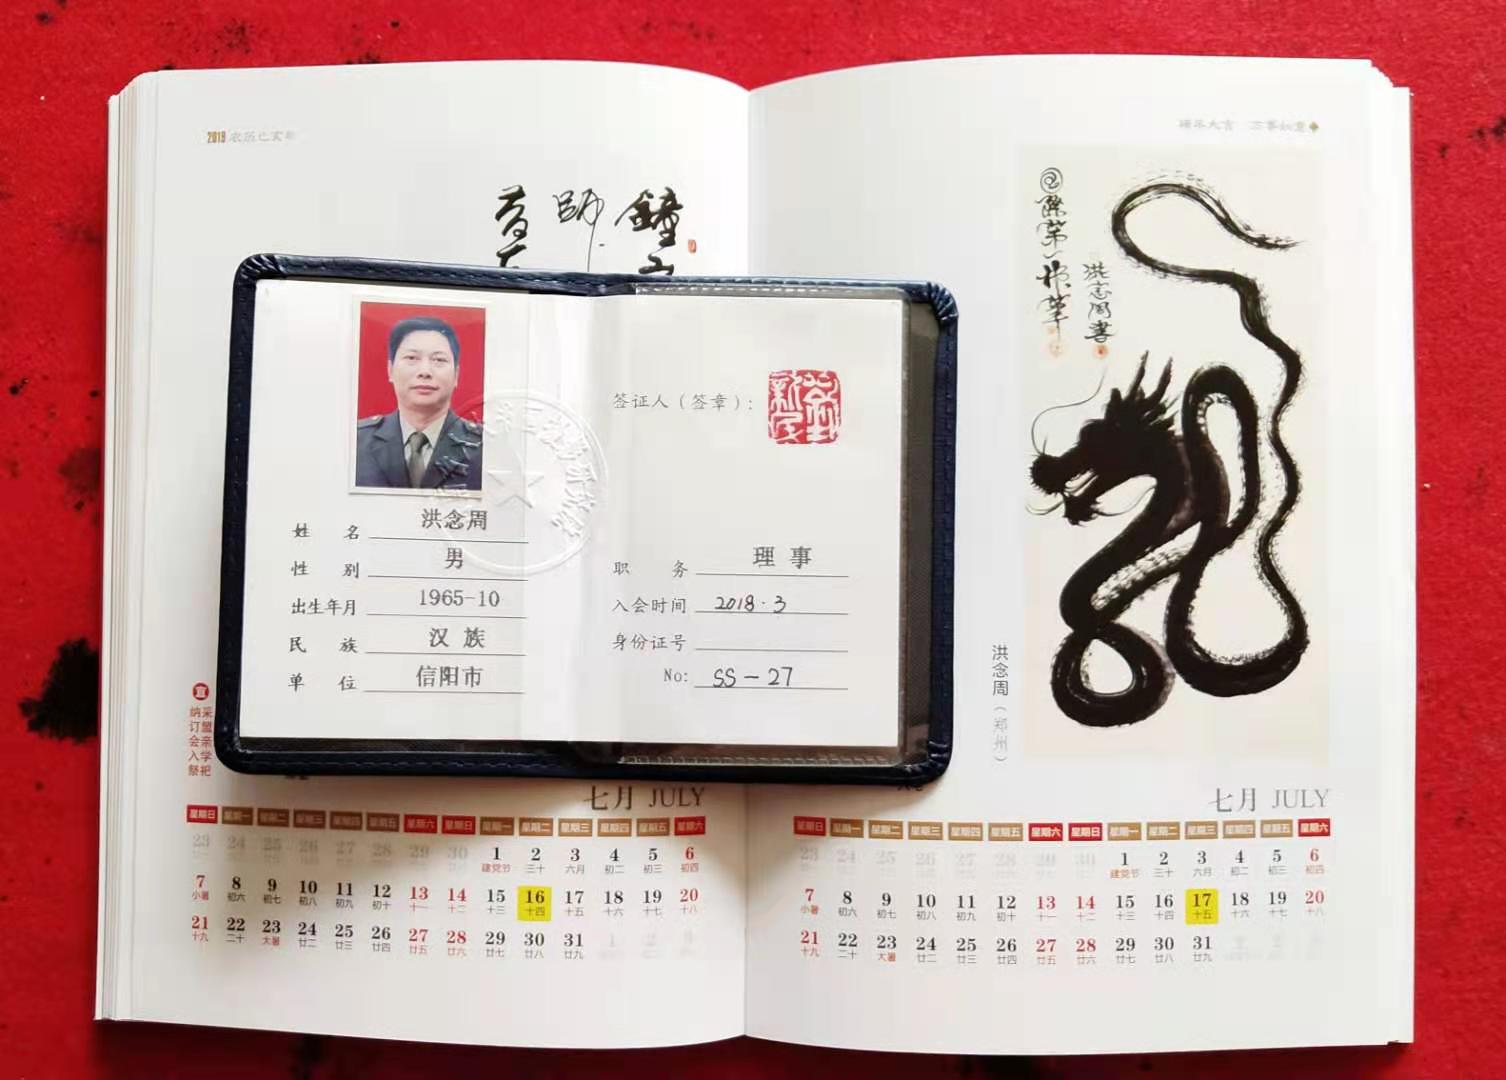 2019 农历己亥年
瑞年大吉 万事如意
鐘
師
洪念周書
签证人（签章）：
姓 名 洪念周
性 别 男
出生年月 1965-10
民 族 汉 族
单 位 信阳市
职 务 理 事
入会时间 2018.3
身份证号
No: SS-27
洪念周（郑州）
宜
采盟亲学祀
纳订会入祭
七月 JULY
星期日 星期一 星期二 星期三 星期四 星期五 星期六 星期日 星期一 星期二 星期三 星期四 星期五 星期六
23 24 25 26 27 28 29 30 1 2 3 4 5 6
建党节 三十 六月 初二 初三 初四
7 8 9 10 11 12 13 14 15 16 17 18 19 20
小暑 初六 初七 初八 初九 初十 十一 十二 十三 十四 十五 十六 十七 十八
21 22 23 24 25 26 27 28 29 30 31 1 2 3
十九 二十 大暑 廿二 廿三 廿四 廿五 廿六 廿七 廿八 廿九
七月 JULY
星期日 星期一 星期二 星期三 星期四 星期五 星期六 星期日 星期一 星期二 星期三 星期四 星期五 星期六
23 24 25 26 27 28 29 30 1 2 3 4 5 6
建党节 三十 六月 初二 初三 初四
7 8 9 10 11 12 13 14 15 16 17 18 19 20
小暑 初六 初七 初八 初九 初十 十一 十二 十三 十四 十五 十六 十七 十八
21 22 23 24 25 26 27 28 29 30 31 1 2 3
十九 二十 大暑 廿二 廿三 廿四 廿五 廿六 廿七 廿八 廿九